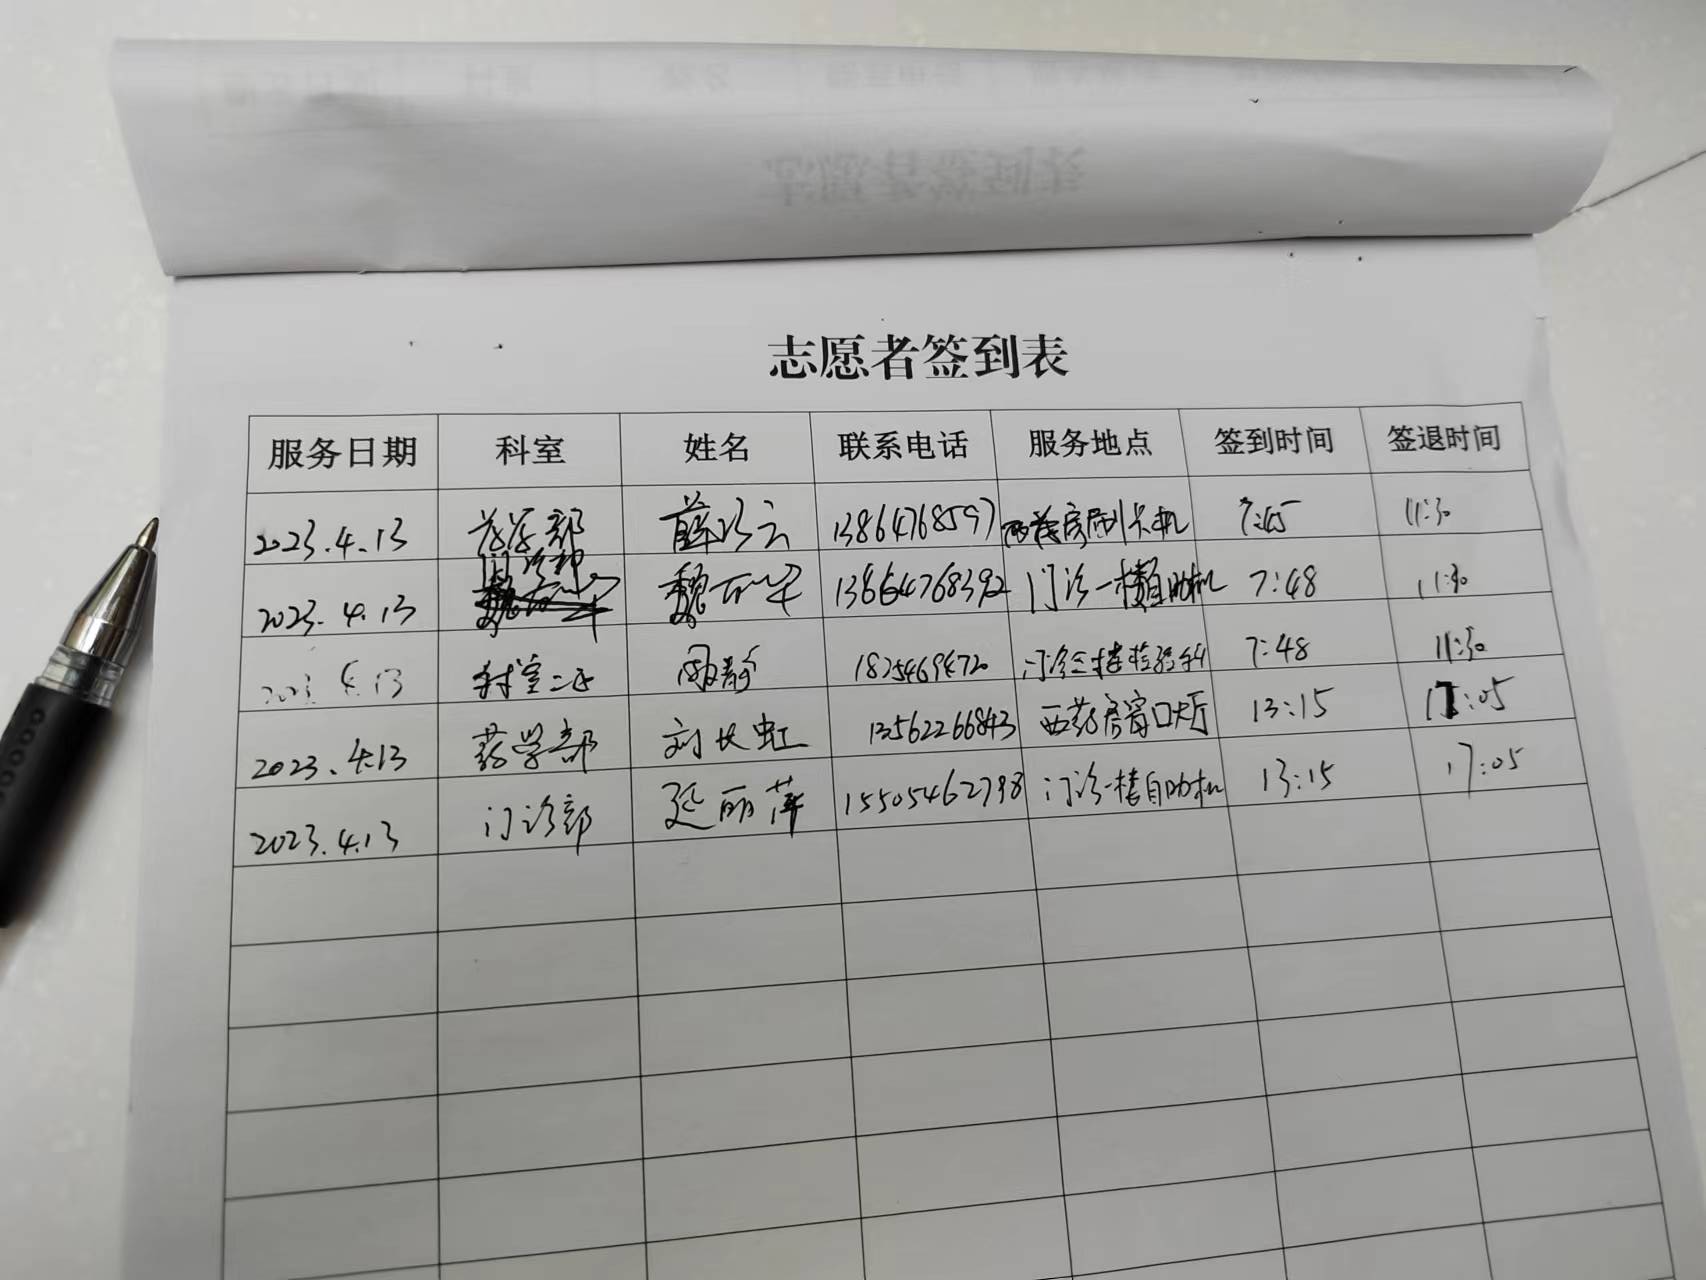 志愿者签到表
服务日期 科室 姓名 联系电话 服务地点 签到时间 签退时间
2023.4.13 药学部 薛 云 13864768597 西药房刷卡机 7:45 11:30
门诊部
2023.4.13 魏 华 13864768392 门诊一楼自助机 7:48 11:30
2023.4.13 周静 门诊三楼检验科 7:48 11:30
2023.4.13 药学部 刘长虹 13562266843 西药房窗口大厅 13:15 17:05
2023.4.13 门诊部 延丽萍 15505462798 门诊一楼自助机 13:15 17:05